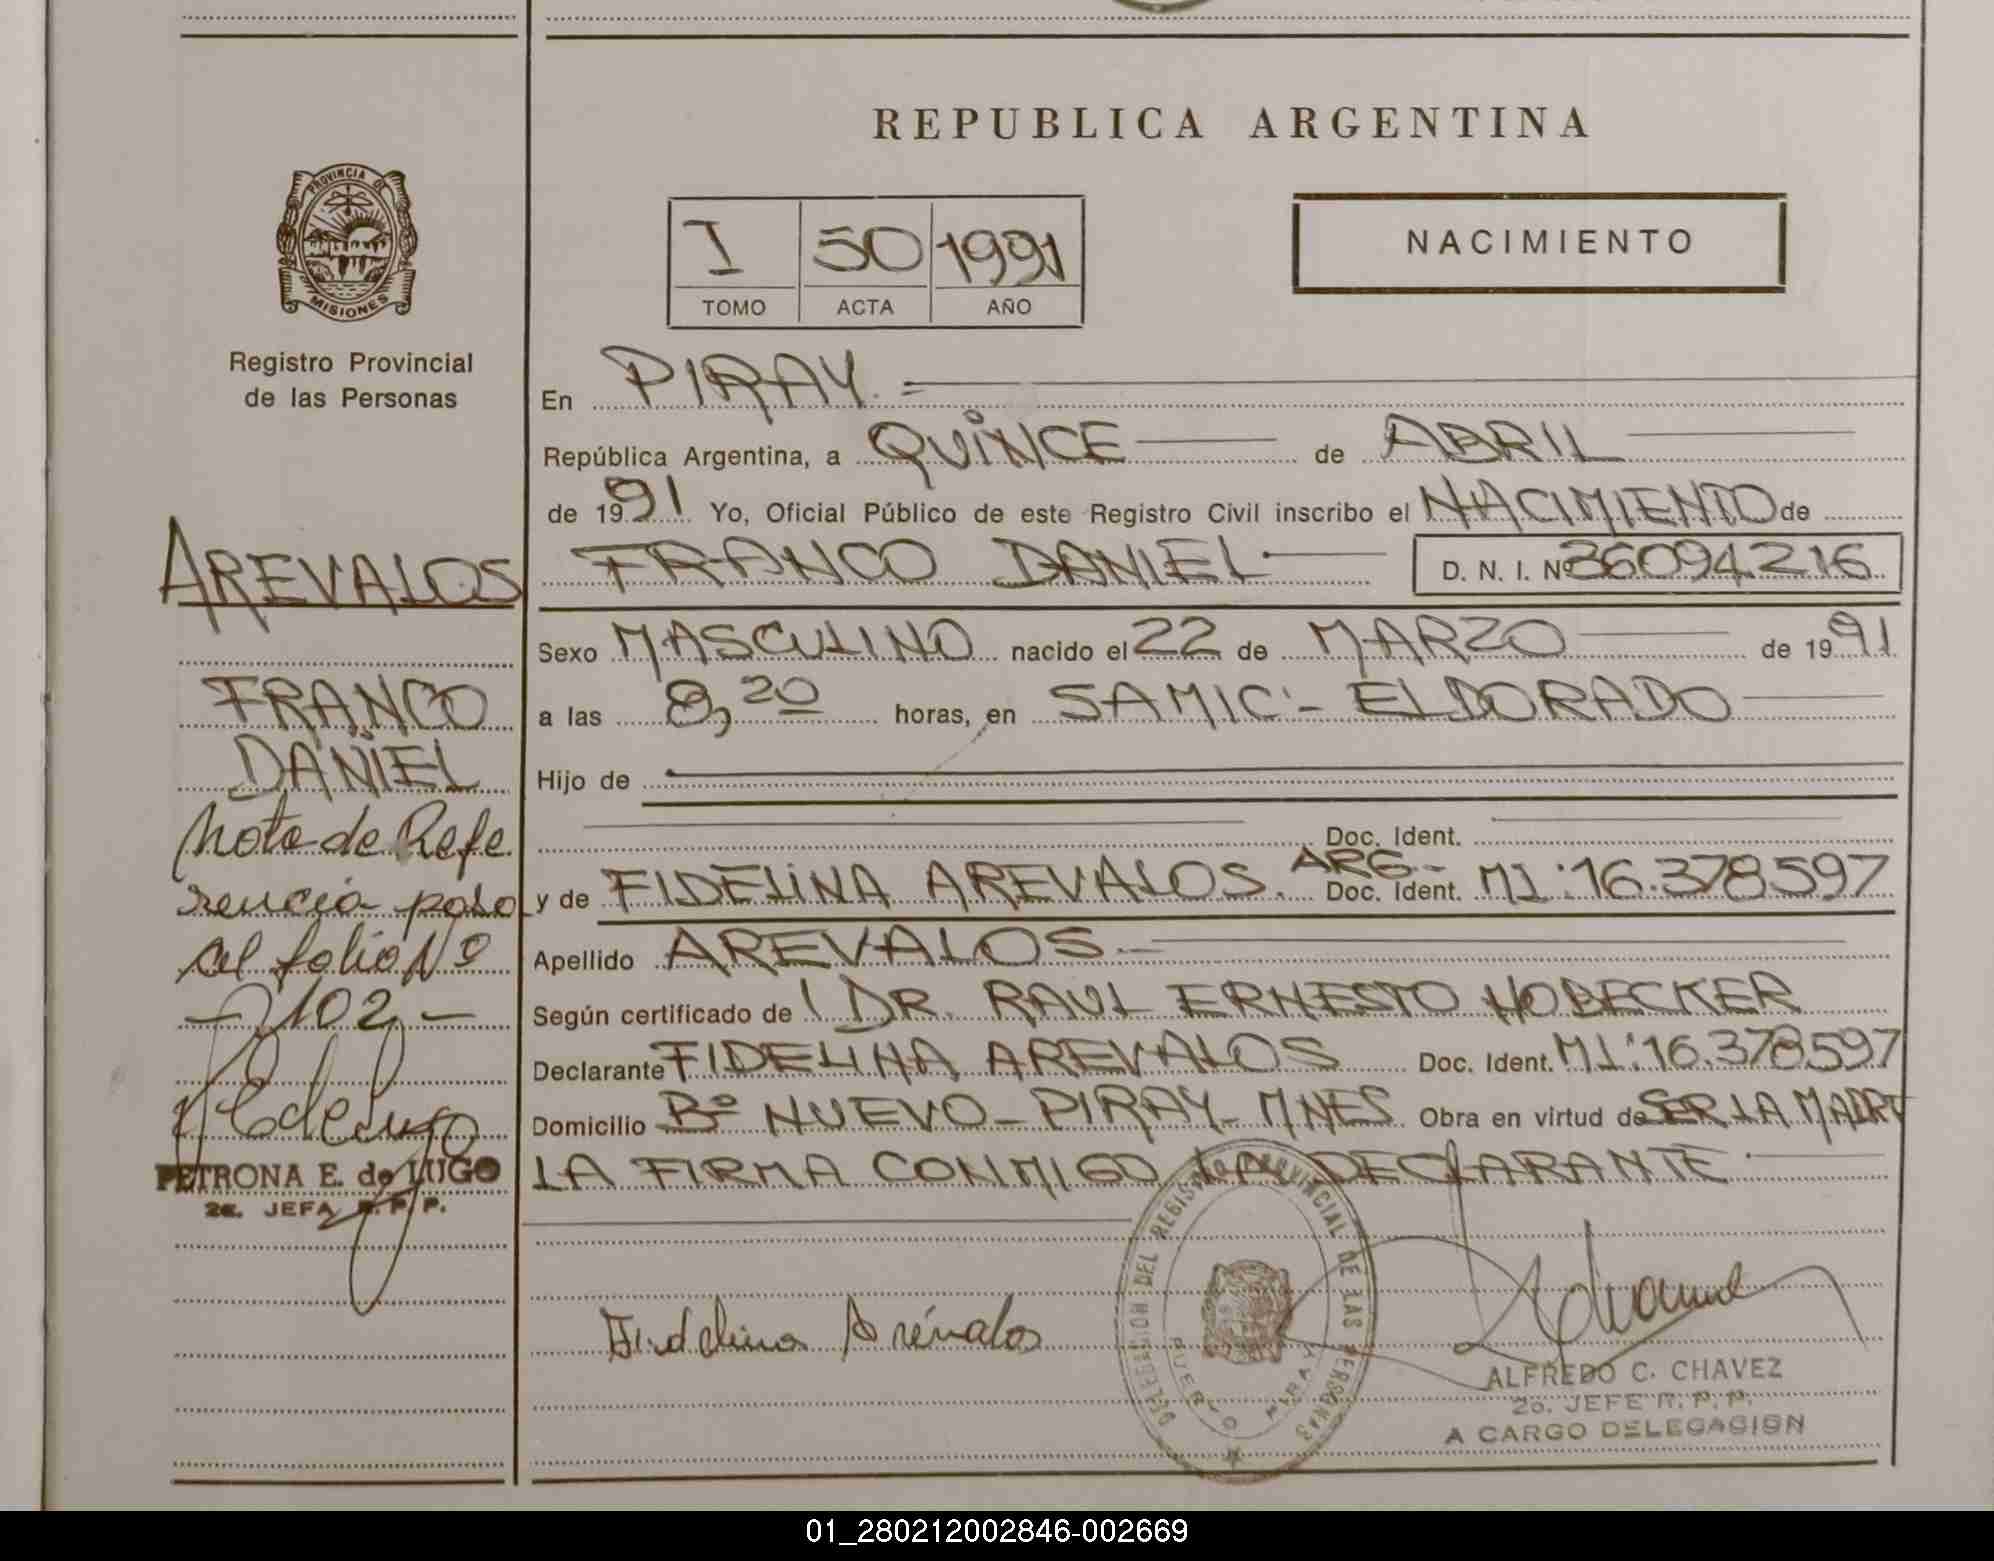 REPUBLICA ARGENTINA
PROVINCIA DE
MISIONES
Registro Provincial
de las Personas
I 50 1991
TOMO ACTA AÑO
NACIMIENTO
En PIRAY.=
República Argentina, a QUINCE de ABRIL
de 1991 Yo, Oficial Público de este Registro Civil inscribo el NACIMIENTO de
FRANCO DANIEL D. N. I. Nº 36094216
Sexo MASCULINO nacido el 22 de MARZO de 1991
a las 8,20 horas, en SAMIC - ELDORADO
Hijo de
Doc. Ident.
y de FIDELINA AREVALOS. ARG.- Doc. Ident. MI:16.378597
Apellido AREVALOS.-
Según certificado de DR. RAUL ERNESTO HOBECKER
Declarante FIDELINA AREVALOS Doc. Ident. MI:16.378597
Domicilio Bº NUEVO - PIRAY - MNES Obra en virtud de SER LA MADRE
LA FIRMA CONMIGO LA DECLARANTE
AREVALOS
FRANCO
DANIEL
Nota de Refe
rencia paso
al folio Nº
- 102 -
PETRONA E. de LUGO
2a. JEFA R. P. P.
Fidelina Arévalos
DELEGACION DEL REGISTRO PROVINCIAL DE LAS PERSONAS
PUERTO PIRAY
ALFREDO C. CHAVEZ
2o. JEFE R. P. P.
A CARGO DELEGACION
01_280212002846-002669